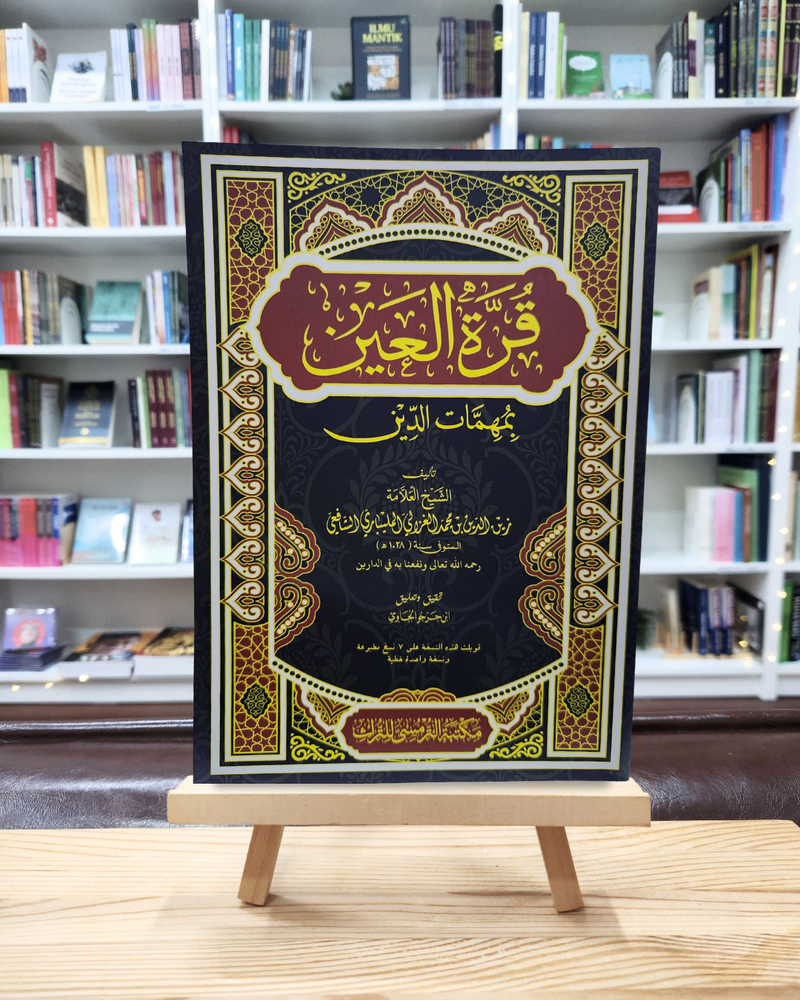 ILMU
MANTIK
قُرَّةُ الْعَيْنِ
بِمُهِمَّاتِ الدِّيْنِ
تأليف
الشَّيْخِ الْعَلَّامَةِ
زين الدين بن محمد الغزالي المليباري الشافعي
المتوفى سنة (١٠٢٨ هـ)
رحمه الله تعالى ونفعنا به في الدارين
تحقيق وتعليق
ابن حرجو الجاوي
قوبلت هذه النسخة على ٧ نسخ مطبوعة
ونسخة واحدة خطية
مكتبة الترمسي للتراث